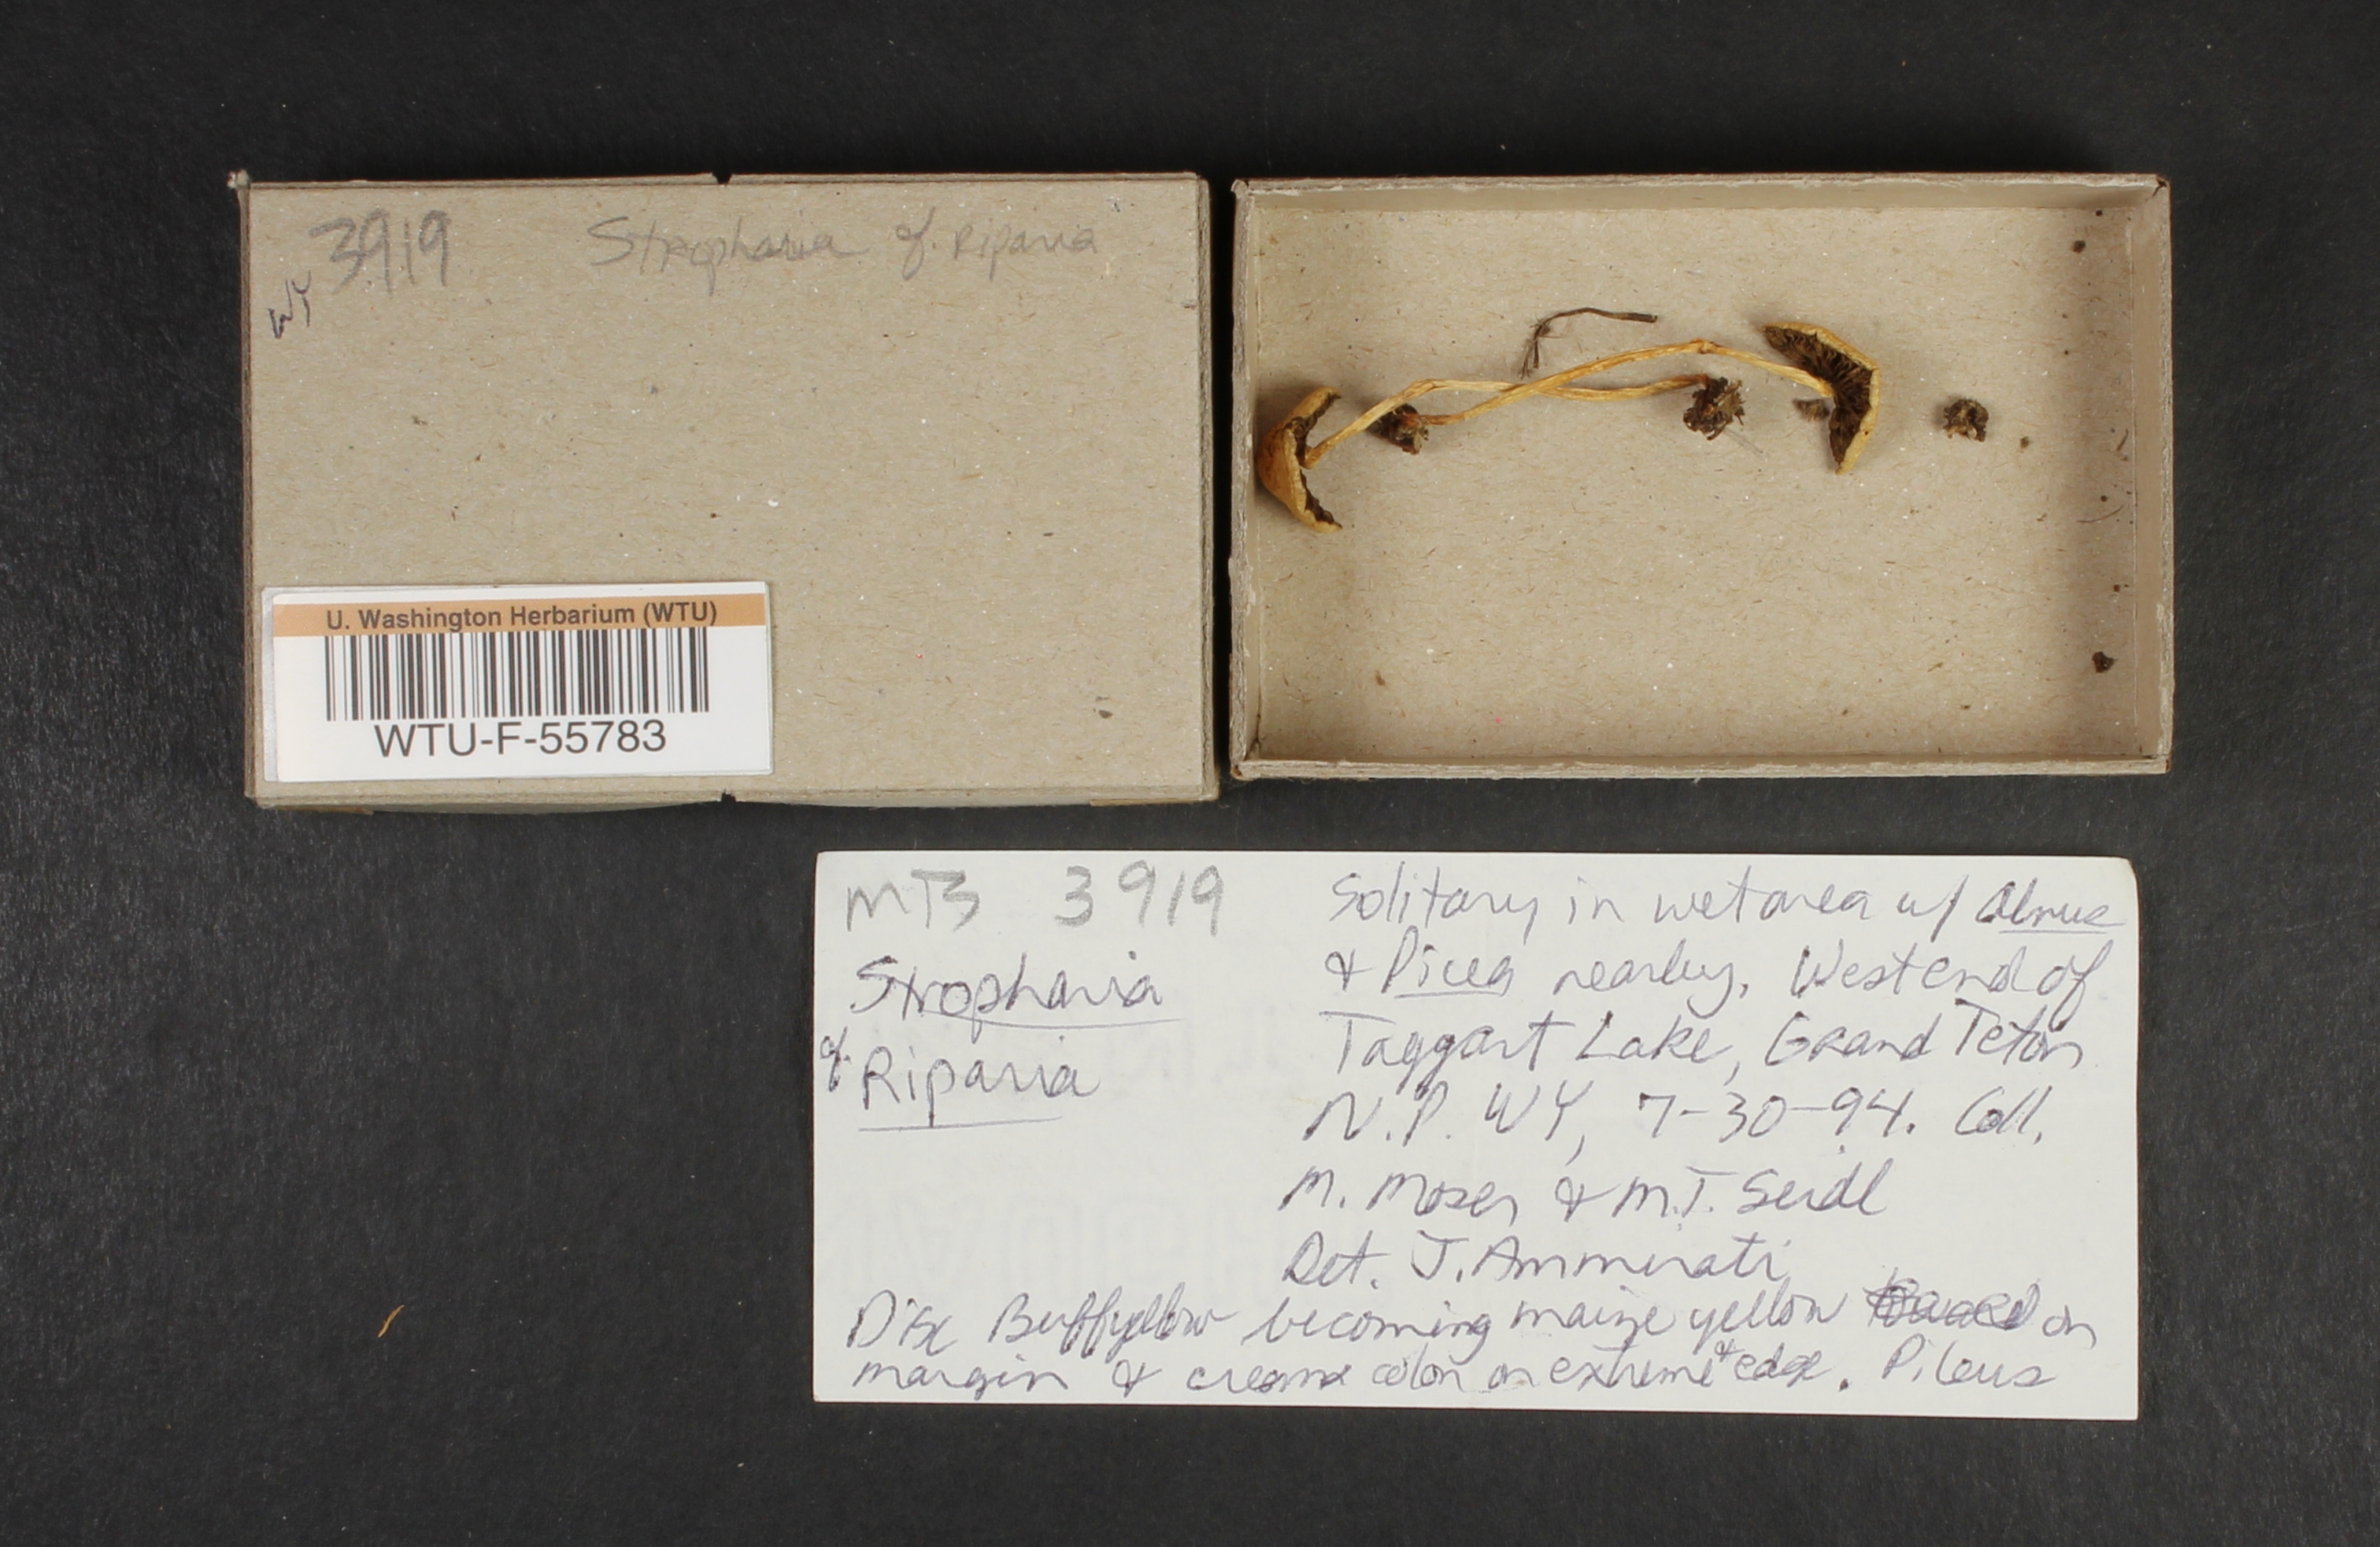 3919 Stropharia cf. Riparia
WY
U. Washington Herbarium (WTU)
WTU-F-55783
MTS 3919
Stropharia
cf. Riparia
Solitary in wet area w/ Alnus
& Picea nearby, West end of
Taggart Lake, Grand Teton
N.P. WY, 7-30-94. Coll.
M. Moser & M.T. Seidl
Det. J. Ammirati
Disc Buffyellow becoming maize yellow on
margin & creame color on extreme edge. Pileus